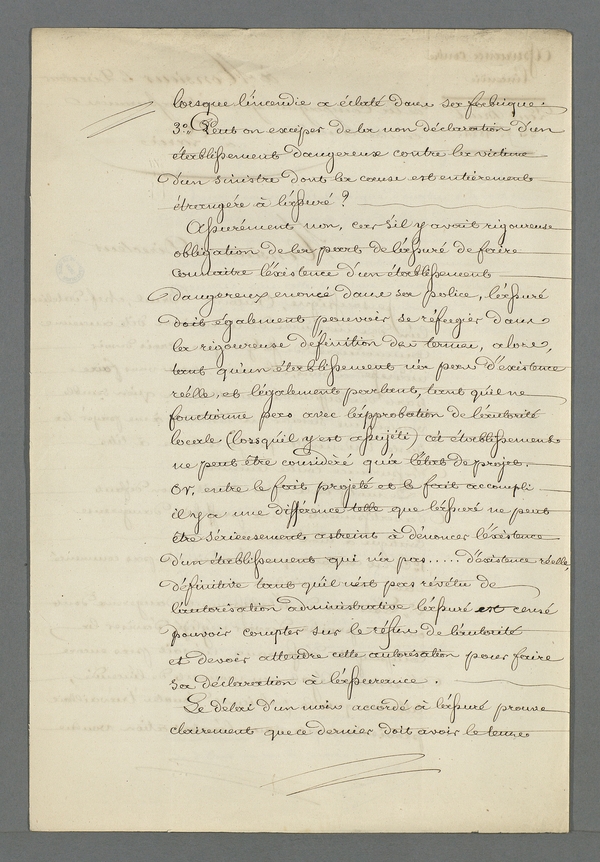 lorsque l'incendie a éclaté dans sa fabrique.
3º. Peut on exciper de la non déclaration d'un
établissement dangereux contre la victime
d'un sinistre dont la cause est entièrement
étrangère à l'assuré ?
Assurément non, car s'il y avait rigoureuse
obligation de la part de l'assuré de faire
connaitre l'éxistence d'un établissement
dangereux enoncé dans sa police, l'assuré
doit également pouvoir se réfugier dans
la rigoureuse définition des termes, alors,
tant qu'un établissement n'a pas d'éxistence
réelle, et légalement parlant, tant qu'il ne
fonctionne pas avec l'approbation de l'autorité
locale (lorsqu'il y est assujéti) cet établissement
ne peut être considéré qu'à l'état de projet.
Or, entre le fait projeté et le fait accompli
il y a une différence telle que l'assuré ne peut
être sérieusement astreint à dénoncer l'éxistence
d'un établissement qui n'a pas..... d'éxistence réelle,
définitive tant qu'il n'est pas révêtu de
l'autorisation administrative l'assuré est censé
pouvoir compter sur le réfus de l'autorité
et devoir attendre cette autorisation pour faire
sa déclaration à l'assurance.
Le délai d'un mois accordé à l'assuré prouve
clairement que ce dernier doit avoir le temps